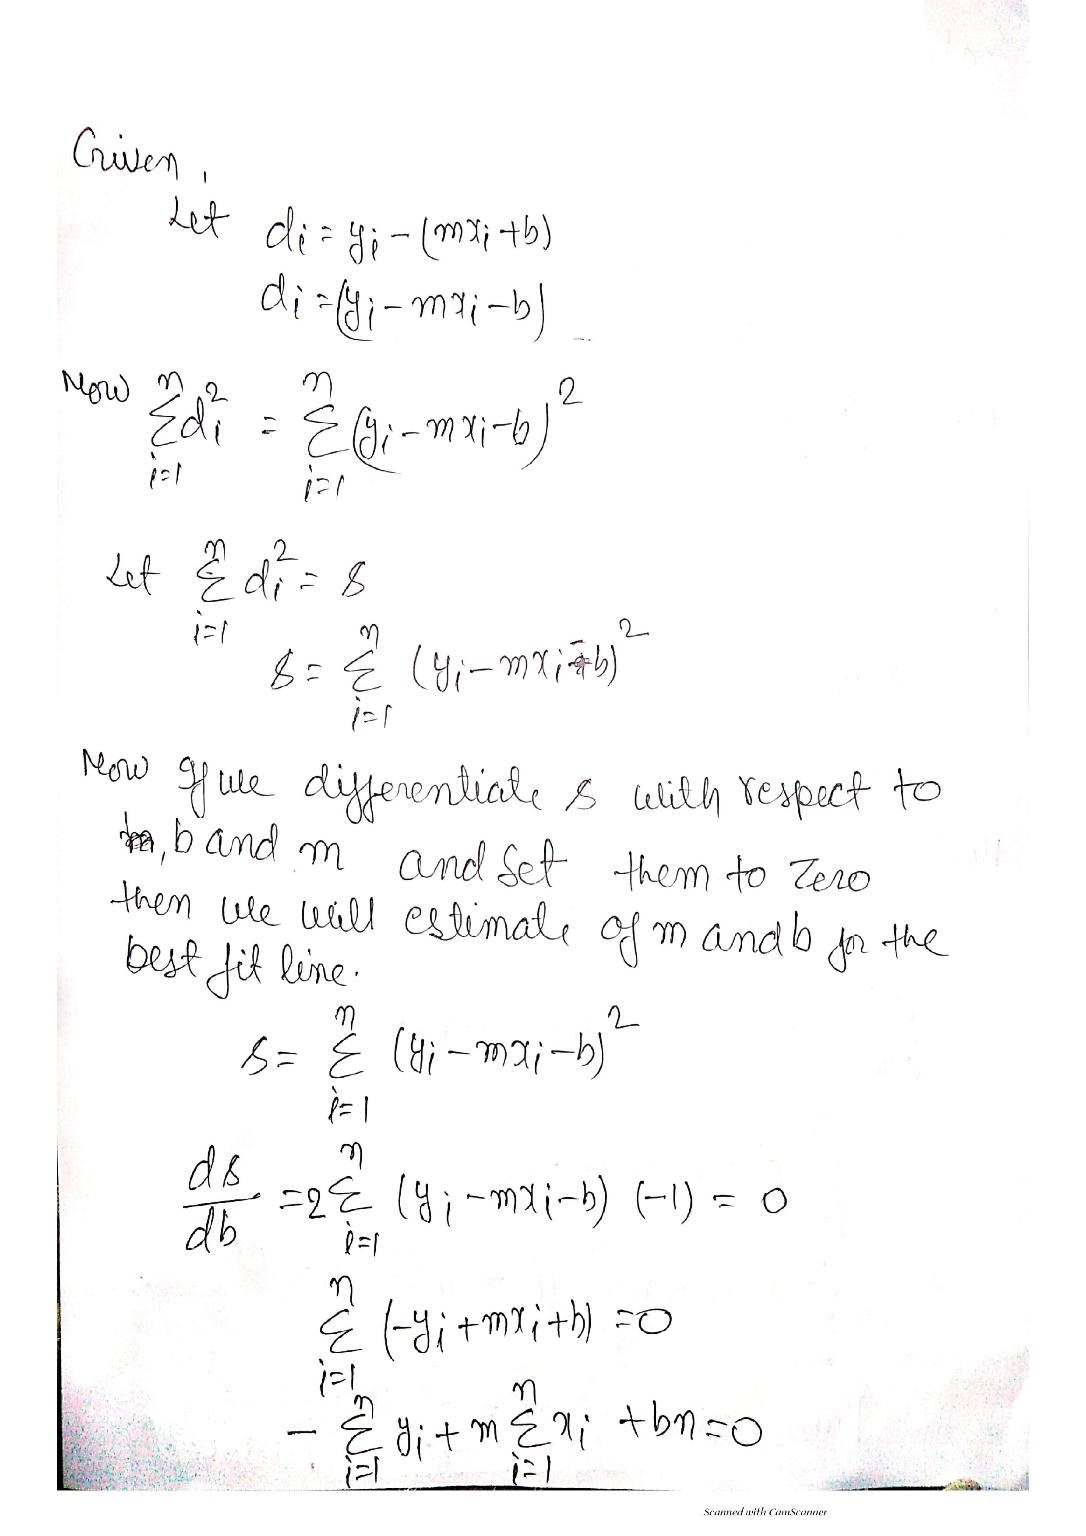 Given,
Let di = yi - (mxi + b)
di = (yi - mxi - b)
Now n∑i=1 di² = n∑i=1 (yi - mxi - b)²
Let n∑i=1 di² = s
s = n∑i=1 (yi - mxi - b)²
Now If we differentiate s with respect to
b and m and Set them to Zero
then we will estimate of m and b for the
best fit line.
s = n∑i=1 (yi - mxi - b)²
ds/db = 2 n∑i=1 (yi - mxi - b) (-1) = 0
n∑i=1 (-yi + mxi + b) = 0
- n∑i=1 yi + m n∑i=1 xi + bn = 0
Scanned with CamScanner